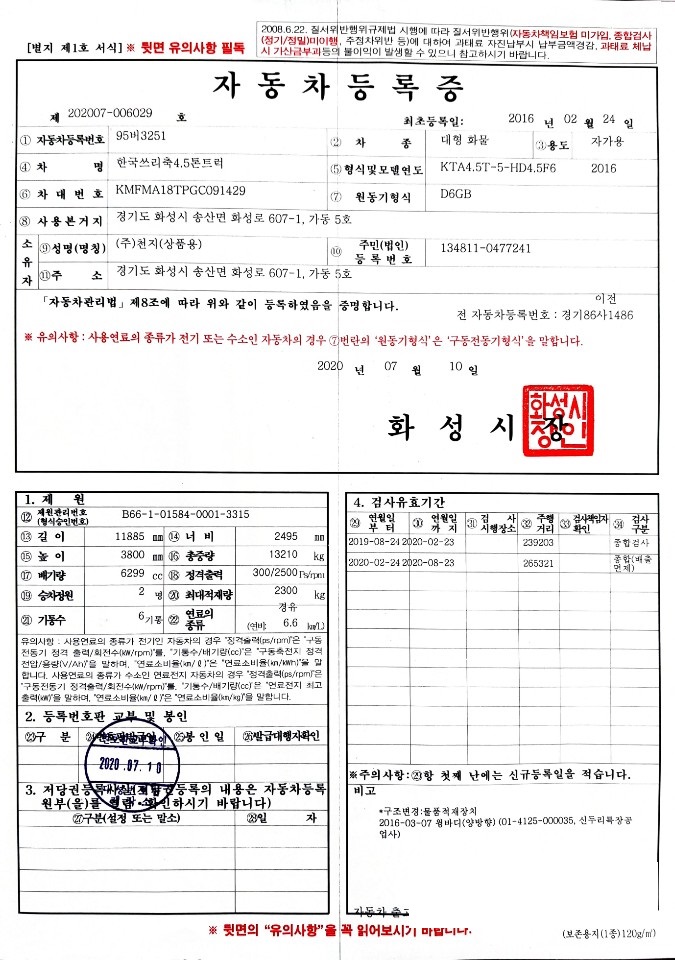 [별지 제1호 서식] ※ 뒷면 유의사항 필독
2008.6.22. 질서위반행위규제법 시행에 따라 질서위반행위(자동차책임보험 미가입, 종합검사
(정기/정밀)미이행, 주정차위반 등)에 대하여 과태료 자진납부시 납부금액경감, 과태료 체납
시 가산금부과등의 불이익이 발생할 수 있으니 참고하시기 바랍니다.
자 동 차 등 록 증
제 202007-006029 호
최초등록일: 2016 년 02 월 24 일
① 자동차등록번호 95버3251 ② 차 종 대형 화물 ③용도 자가용
④ 차 명 한국쓰리축4.5톤트럭 ⑤ 형식및모델연도 KTA4.5T-5-HD4.5F6 2016
⑥ 차 대 번 호 KMFMA18TPGC091429 ⑦ 원동기형식 D6GB
⑧ 사 용 본 거 지 경기도 화성시 송산면 화성로 607-1, 가동 5호
소유자 ⑨성명(명칭) (주)천지(상품용) ⑩ 주민(법인)등록번호 134811-0477241
⑪주 소 경기도 화성시 송산면 화성로 607-1, 가동 5호
「자동차관리법」제8조에 따라 위와 같이 등록하였음을 증명합니다.
이전
전 자동차등록번호 : 경기86사1486
※ 유의사항 : 사용연료의 종류가 전기 또는 수소인 자동차의 경우 ⑦번란의 '원동기형식'은 '구동전동기형식'을 말합니다.
2020 년 07 월 10 일
화 성 시 장
화성시
장인
1. 제 원
⑫ 제원관리번호(형식승인번호) B66-1-01584-0001-3315
⑬ 길 이 11885 mm ⑭ 너 비 2495 mm
⑮ 높 이 3800 mm ⑯ 총중량 13210 kg
⑰ 배기량 6299 cc ⑱ 정격출력 300/2500 Ps/rpm
⑲ 승차정원 2 명 ⑳ 최대적재량 2300 kg
㉑ 기통수 6 기통 ㉒ 연료의 종류 경유 (연비: 6.6 km/L)
유의사항 : 사용연료의 종류가 전기인 자동차의 경우 "정격출력(ps/rpm)"은 "구동
전동기 정격 출력/회전수(kW/rpm)"를, "기통수/배기량(cc)"은 "구동축전지 정격
전압/용량(V/Ah)"을 말하며, "연료소비율(km/ℓ)"은 "연료소비율(kn/kWh)"을 말
합니다. 사용연료의 종류가 수소인 연료전지 자동차의 경우 "정격출력(ps/rpm)"은
"구동전동기 정격출력/회전수(kW/rpm)"를, "기통수/배기량(cc)"은 "연료전지 최고
출력(kW)"을 말하며, "연료소비율(km/ℓ)"은 "연료소비율(km/kg)"을 말합니다.
2. 등록번호판 교부 및 봉인
㉓구 분 ㉕봉 인 일 ㉖발급대행자확인
2020.07.10
3. 저당권등록사실(저당권등록의 내용은 자동차등록
원부(을)를 열람·확인하시기 바랍니다)
㉗구분(설정 또는 말소) ㉘일 자
4. 검사유효기간
㉙ 연월일부터 ㉚ 연월일까지 ㉛ 검 사시행장소 ㉜ 주행거리 ㉝ 검사책임자확인 ㉞ 검사구분
2019-08-24 2020-02-23 239203 종합검사
2020-02-24 2020-08-23 265321 종합(배출면제)
※주의사항:㉙항 첫째 난에는 신규등록일을 적습니다.
비고
*구조변경:물품적재장치
2016-03-07 윙바디(양방향) (01-4125-000035, 신두리특장공
업사)
자동차 출고
※ 뒷면의 "유의사항"을 꼭 읽어보시기 바랍니다.
(보존용지(1종)120g/㎡)